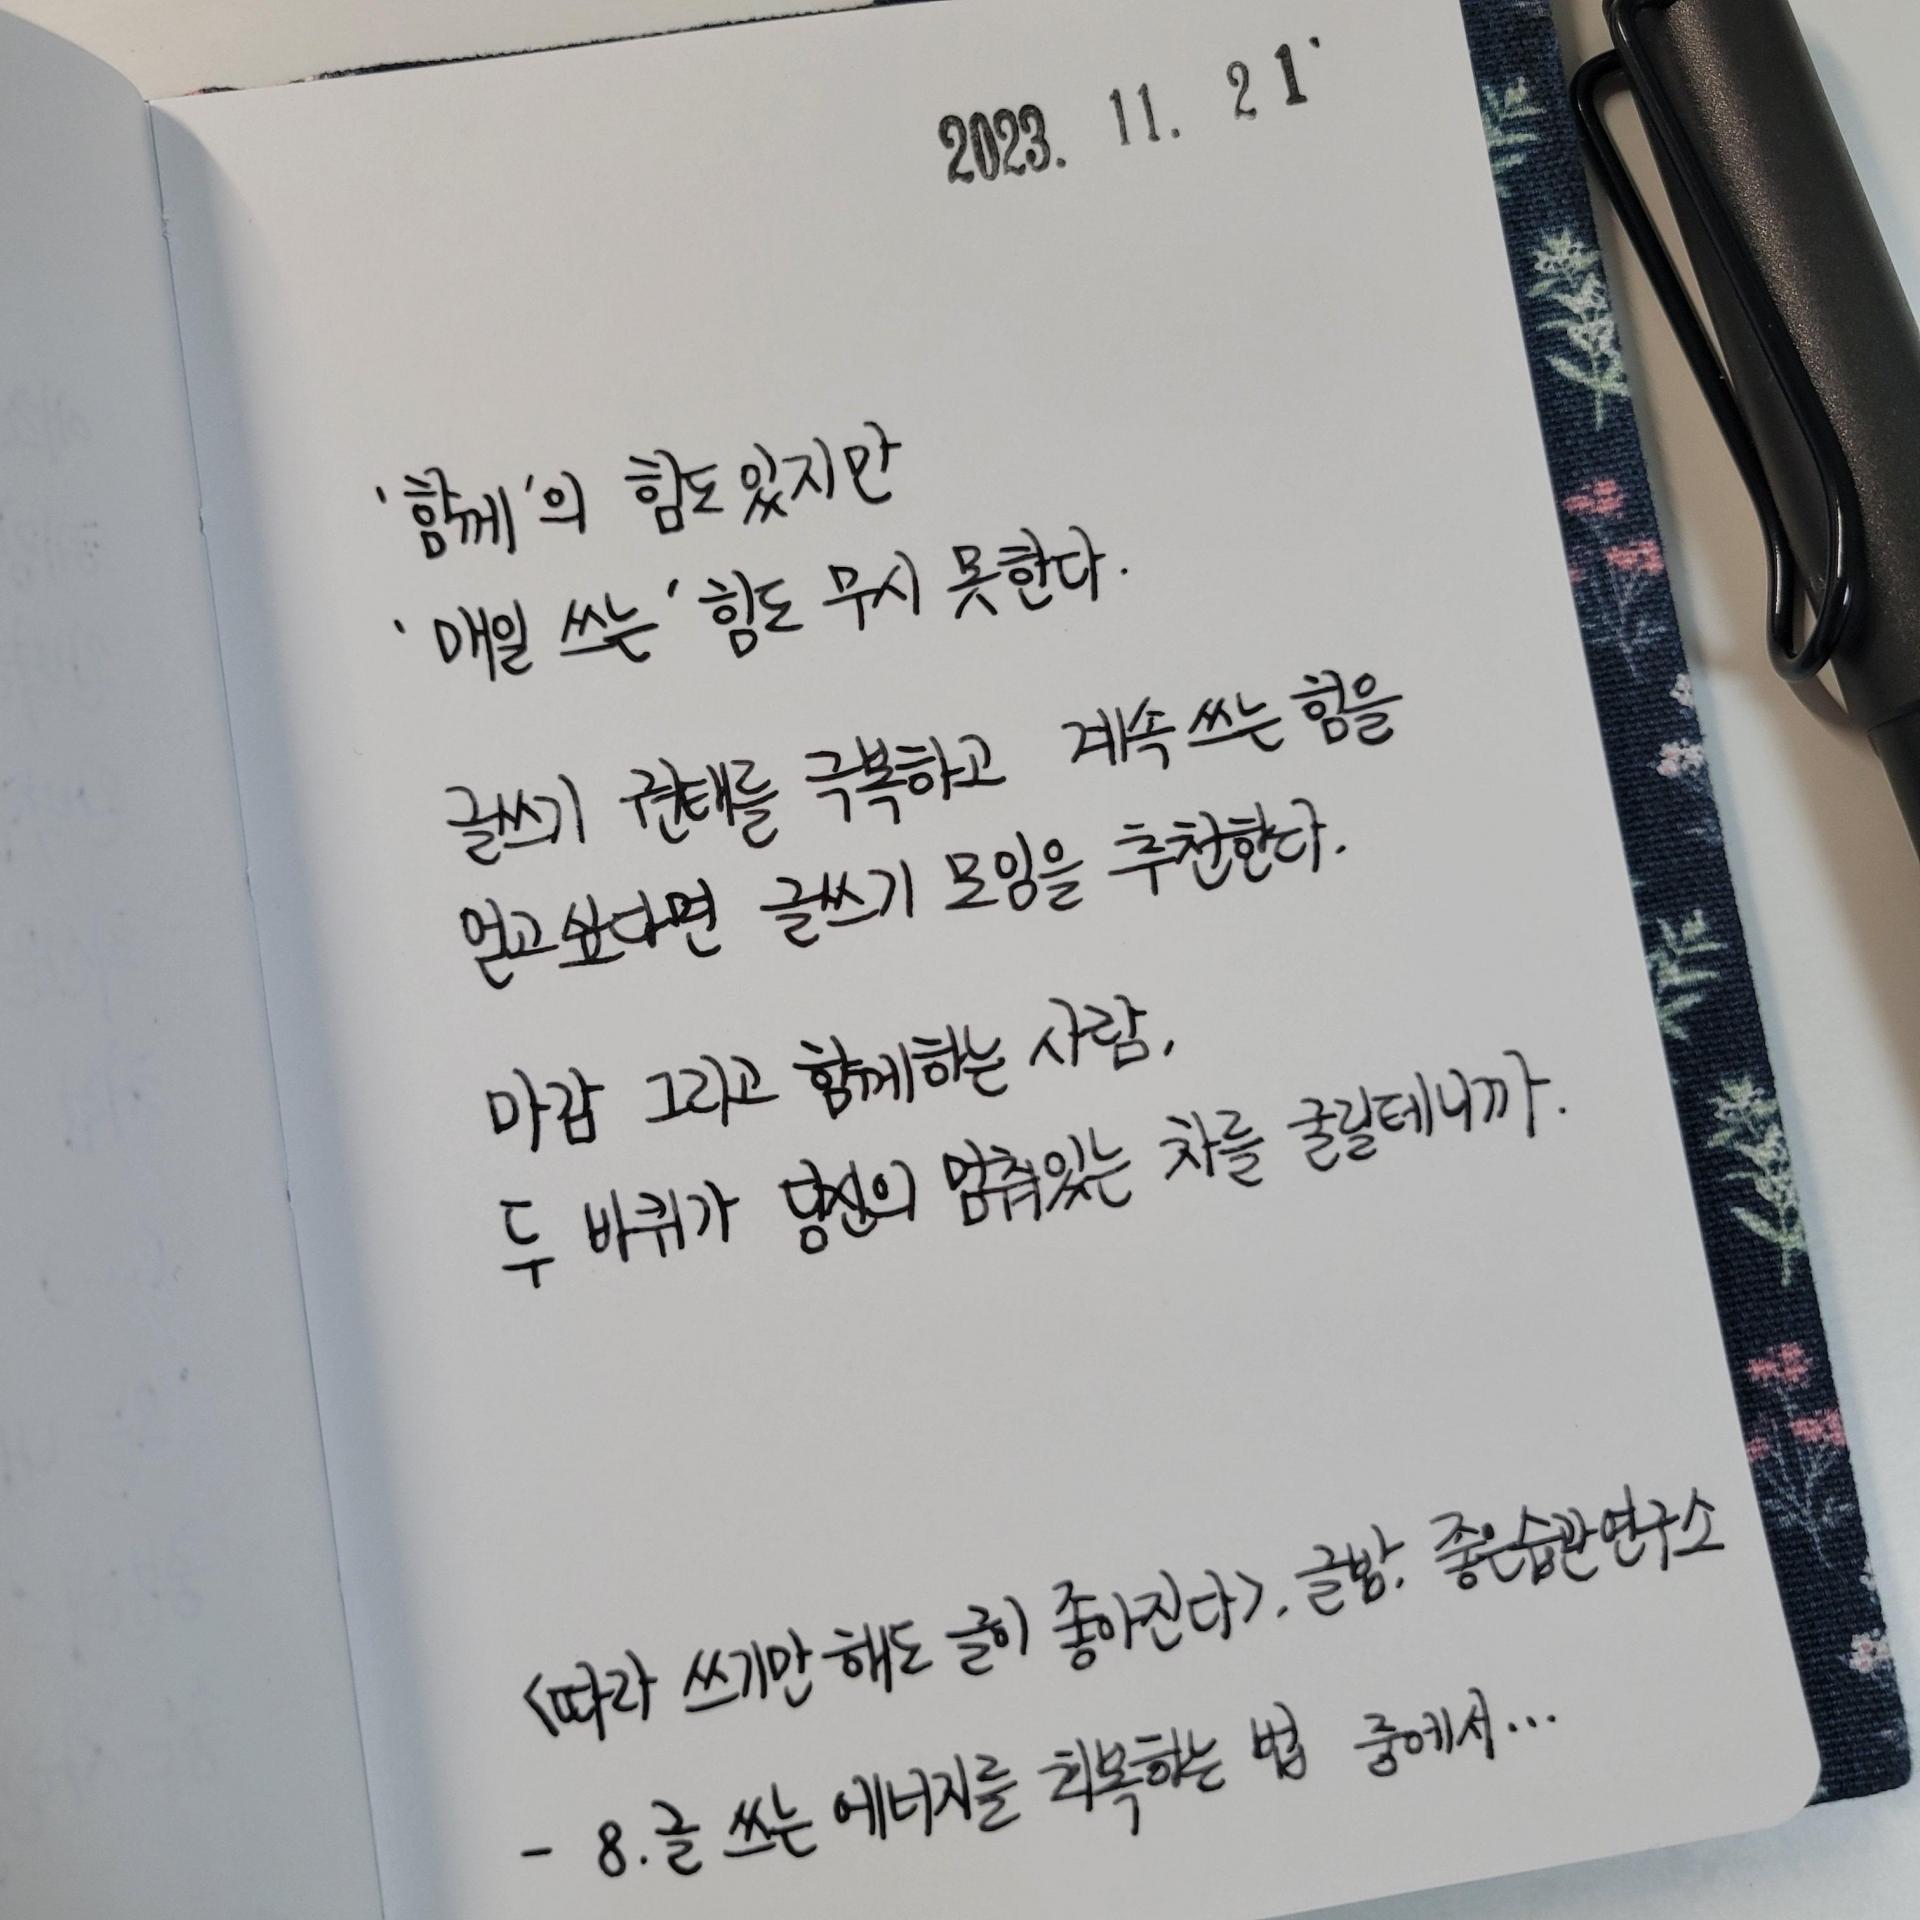 2023. 11. 21.
'함께'의 힘도 있지만
'매일 쓰는' 힘도 무시 못한다.
글쓰기 권태를 극복하고 계속 쓰는 힘을
얻고 싶다면 글쓰기 모임을 추천한다.
마감 그리고 함께하는 사람,
두 바퀴가 당신의 멈춰있는 차를 굴릴테니까.
<따라 쓰기만 해도 글이 좋아진다>. 글밥. 좋은습관연구소
- 8. 글 쓰는 에너지를 회복하는 법 중에서...